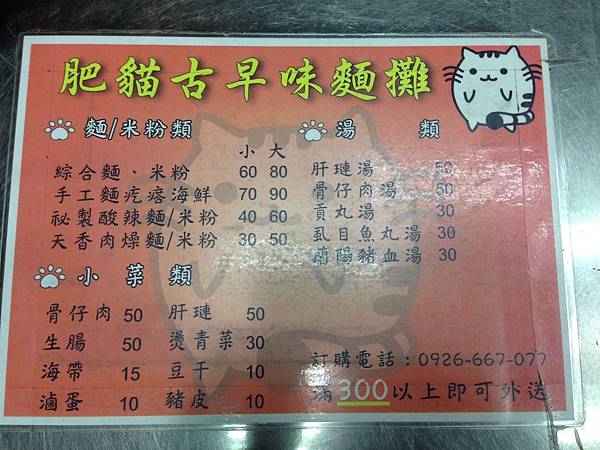 肥貓古早味麵攤
麵/米粉類
小 大
綜合麵、米粉 60 80
手工麵疙瘩海鮮 70 90
祕製酸辣麵/米粉 40 60
天香肉燥麵/米粉 30 50
湯 類
肝瑳湯 50
骨仔肉湯 50
貢丸湯 30
虱目魚丸湯 30
蘭陽豬血湯 30
小 菜 類
骨仔肉 50 肝瑳 50
生腸 50 燙青菜 30
海帶 15 豆干 10
滷蛋 10 豬皮 10
訂購電話：0926-667-077
滿300以上即可外送